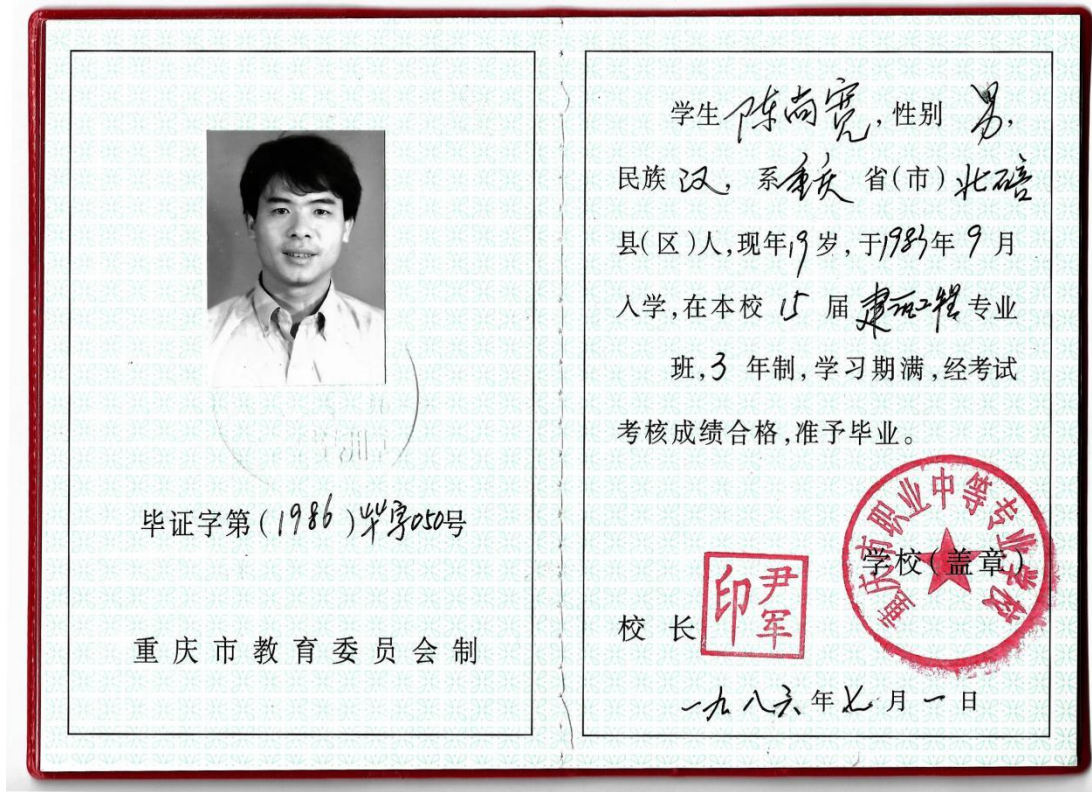 毕证字第(1986)毕字050号
重庆市教育委员会制
学生 陈尚宽, 性别 男,
民族 汉, 系 重庆 省(市) 北碚
县(区)人,现年 19 岁, 于1983年 9 月
入学,在本校 15 届 建筑工程 专业
班, 3 年制,学习期满,经考试
考核成绩合格,准予毕业。
重庆市职业中等专业学校
学校(盖章)
校 长
尹军印
一九八六年七月一日